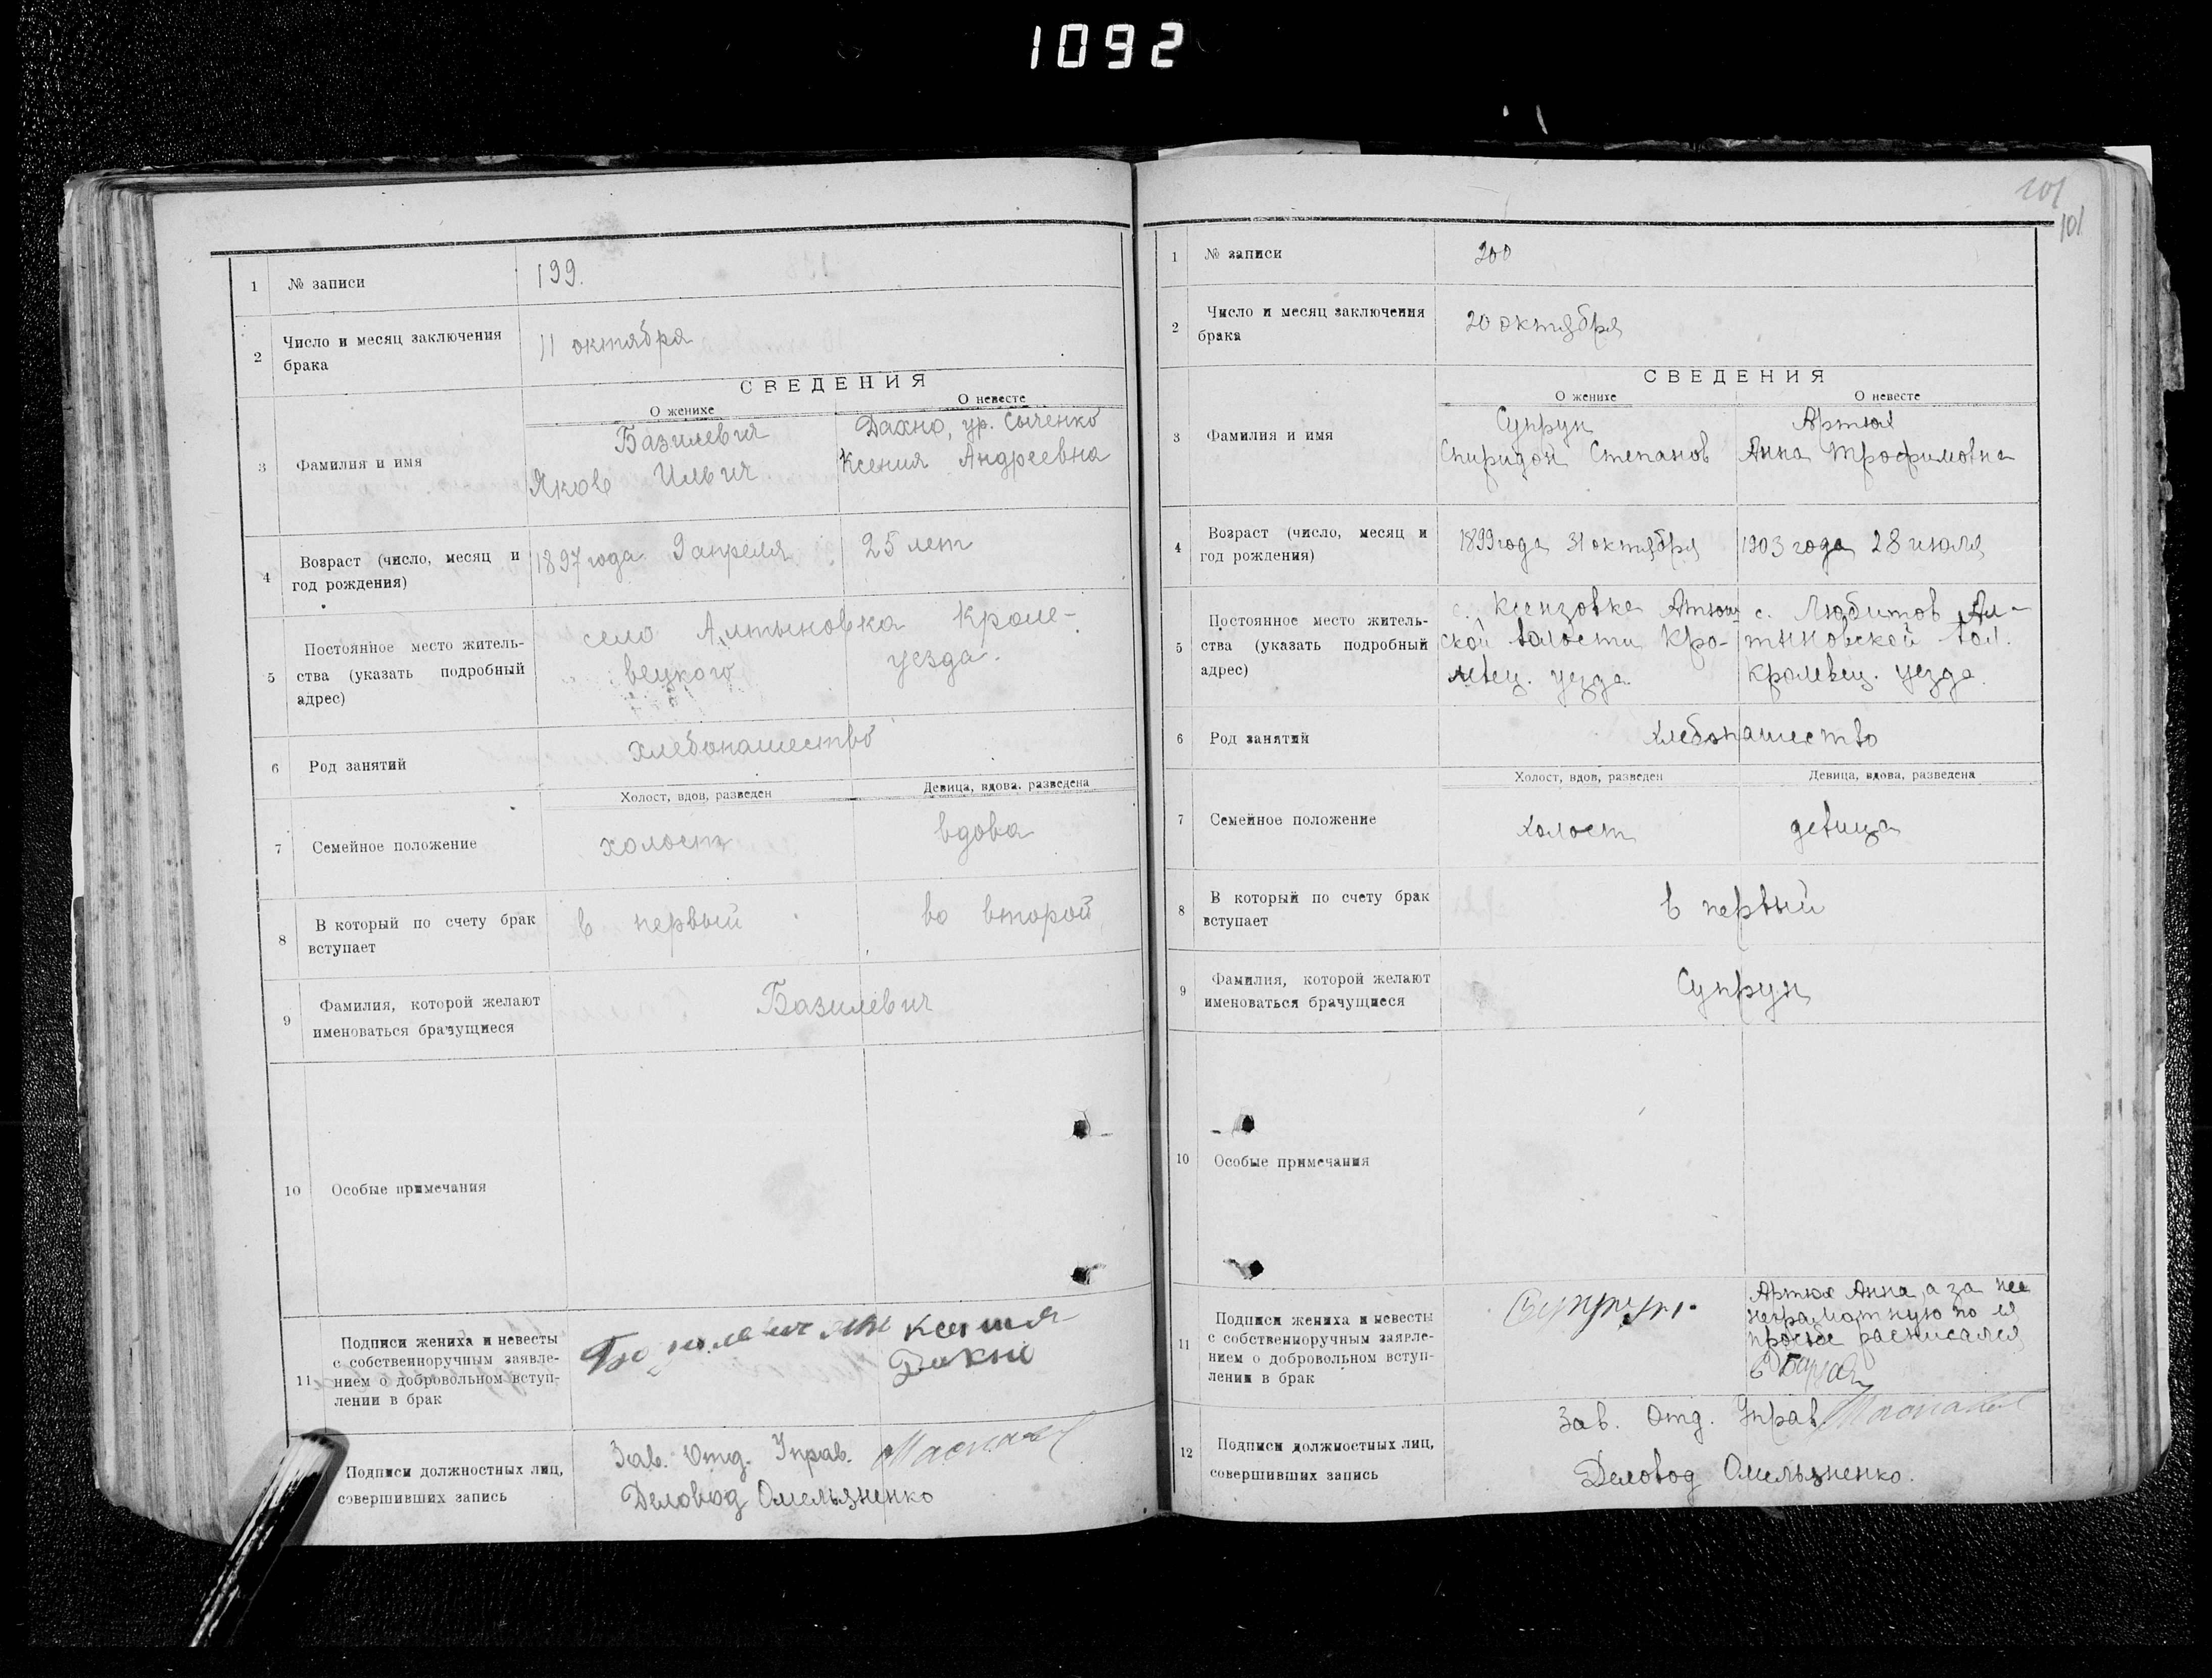 1092
1 № записи 199.
2 Число и месяц заключения
брака
11 октября
СВЕДЕНИЯ
О женихе О невесте
3 Фамилия и имя
Базилевич
Яков Ильич
Дахно, ур. Сыченко
Ксения Андреевна
4 Возраст (число, месяц и
год рождения)
1897 года 9 апреля
25 лет
5 Постоянное место житель-
ства (указать подробный
адрес)
село Алтыновка Кроле-
вецкого уезда.
6 Род занятий
хлебопашество
Холост, вдов, разведен Девица, вдова, разведена
7 Семейное положение
холост вдова
8 В который по счету брак
вступает
в первый во второй
9 Фамилия, которой желают
именоваться брачущиеся
Базилевич
10 Особые примечания
11 Подписи жениха и невесты
с собственноручным заявле-
нием о добровольном вступ-
лении в брак
Ксения
Дахно
Подписи должностных лиц,
совершивших запись
Зав. Отд. Управ.
Деловод Омельяненко
101
101
1 № записи 200
2 Число и месяц заключения
брака
20 октября
СВЕДЕНИЯ
О женихе О невесте
3 Фамилия и имя
Супрун
Спиридон Степанов
Артюх
Анна Трофимовна
4 Возраст (число, месяц и
год рождения)
1899 года 31 октября
1903 года 28 июля
5 Постоянное место житель-
ства (указать подробный
адрес)
с.
ской волости Кро-
левец. уезда
с. Любитов Ал-
тыновской вол.
Кролевец. уезда.
6 Род занятий
хлебопашество
Холост, вдов, разведен Девица, вдова, разведена
7 Семейное положение
холост девица
8 В который по счету брак
вступает
в первый
9 Фамилия, которой желают
именоваться брачущиеся
Супрун
10 Особые примечания
11 Подписи жениха и невесты
с собственноручным заявле-
нием о добровольном вступ-
лении в брак
Супрун.
Артюх Анна, а за нее
неграмотную по ея
просьбе расписался
12 Подписи должностных лиц,
совершивших запись
Зав. Отд. Управ
Деловод Омельяненко.